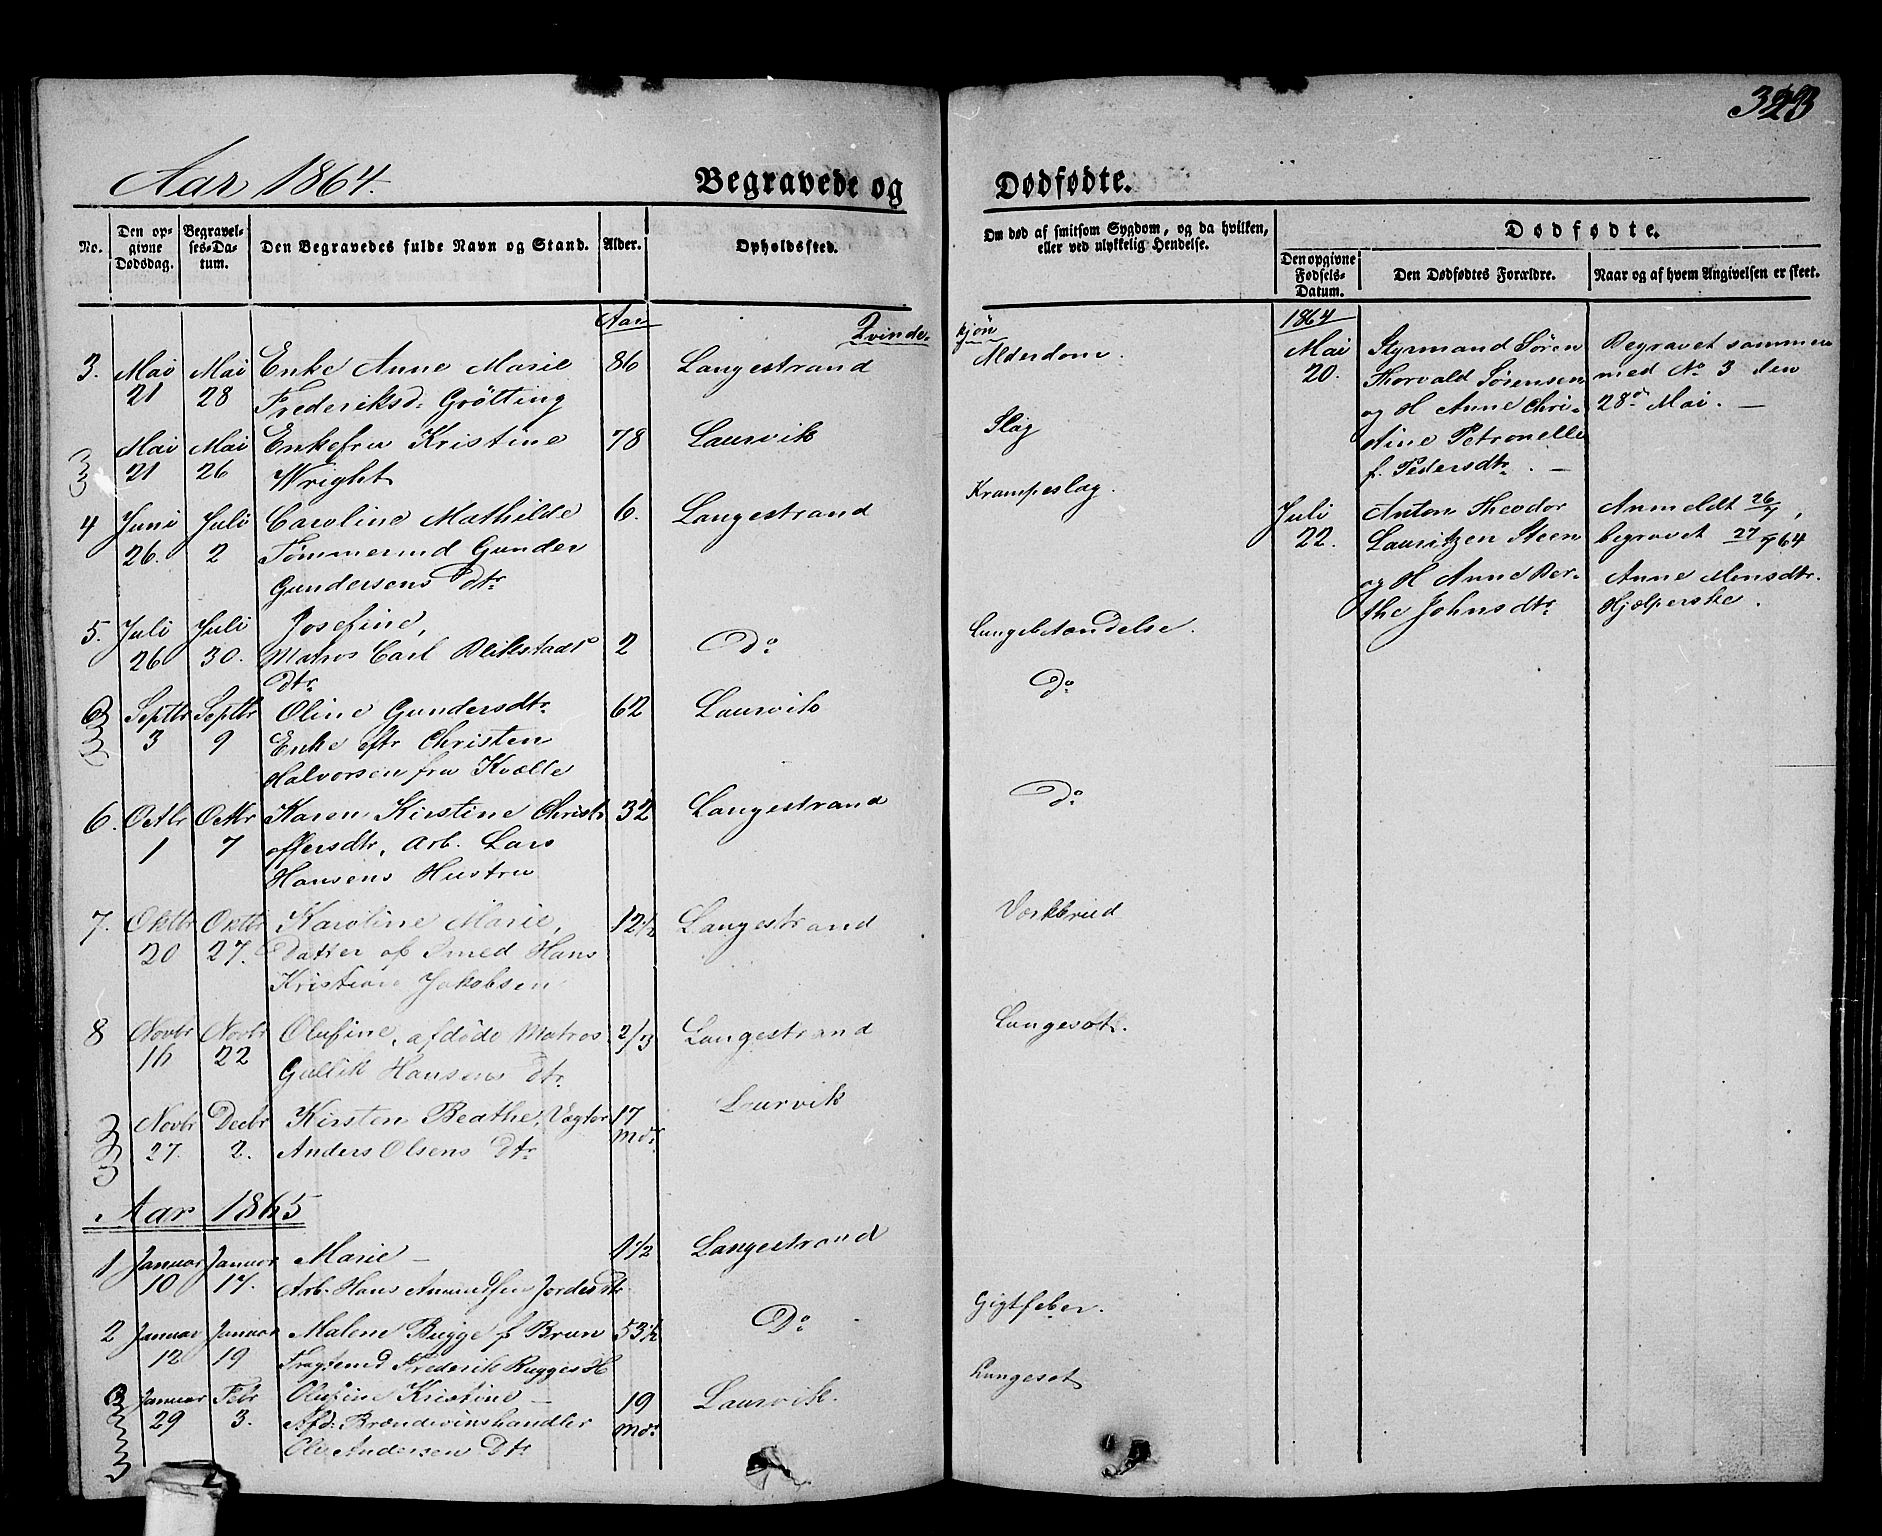 323
Aar 1864.
Begravede og Dødfødte.
No.
Den opgivne Dødsdag.
Begravelses-Datum.
Den Begravedes fulde Navn og Stand.
Alder.
Opholdssted.
Om død af smitsom Sygdom, og da hvilken,
eller ved ulykkelig Hendelse.
Dødfødte.
Den opgivne Fødsels-Datum.
Den Dødfødtes Forældre.
Naar og af hvem Angivelsen er skeet.
Aar
Qvindekjön
3. Mai Mai Enke Anne Marie 86 Langestrand Alderdom.
21 28 Frederiksd: Grötting
Mai Mai Enkefru Kristine 78 Laurvik Slag
21 26 Wright
4 Juni Juli Caroline Mathilde 6. Langestrand Krampeslag.
26. 2 Tømmermd Gunder
Gundersens dtr
5. Juli Juli Josefine,
26 30. Matros Carl 2 Do Lungebetændelse.
dtr.
Septbr Septbr Oline Gundersdtr 62 Laurvik Do
3 9 Enke eftr Christen
Halvorsen fra Kvelle
6. Octbr Octbr Karen Kirstine Christ 32 Langestrand Do
1 7 offersdtr, Arb. Lars
Hansens Hustru
7. Oktbr Oktbr Karoline Marie, 12½ Langestrand Værkbrud
20 27. Datter af Smed Hans
Kristian Jakobsen
8 Novbr Novbr Olufine, afdöde Matros 2/3 Langestrand Lungesot.
16 22 Gullik Hansens dtr.
Novbr Decbr Kirsten Beathe, Vægter 17 Laurvik
27. 2. Anders Olsens Dtr. Mdr.
Aar 1865
1 Januar Januar Marie — 1½ Langestrand
10 17. Arb. Hans
2 Januar Januar Malene Bugge f Brun 53½ Do Gigtfeber.
12 19 Fragtemd Frederik Bugges H
Januar Febr Olufine Kristine — 19 Laurvik. Lungesot
29 3. Afd: Brændevinshandler Mdr
Ole Andersen Dtr.
1864
Mai Styrmand Sören Begravet sammen
20. Thorvald Sørensen med No 3 den
og H Anne Chri- 28de Mai. —
stine Petronelle
f. Pedersdtr. —
Juli Anton Theodor Anmeldt 26/7,
22. Lauritzen Steen begravet 27/7 64
og H Anne Ber- Anne Monsdtr.
the Johnsdtr Hjælperske.